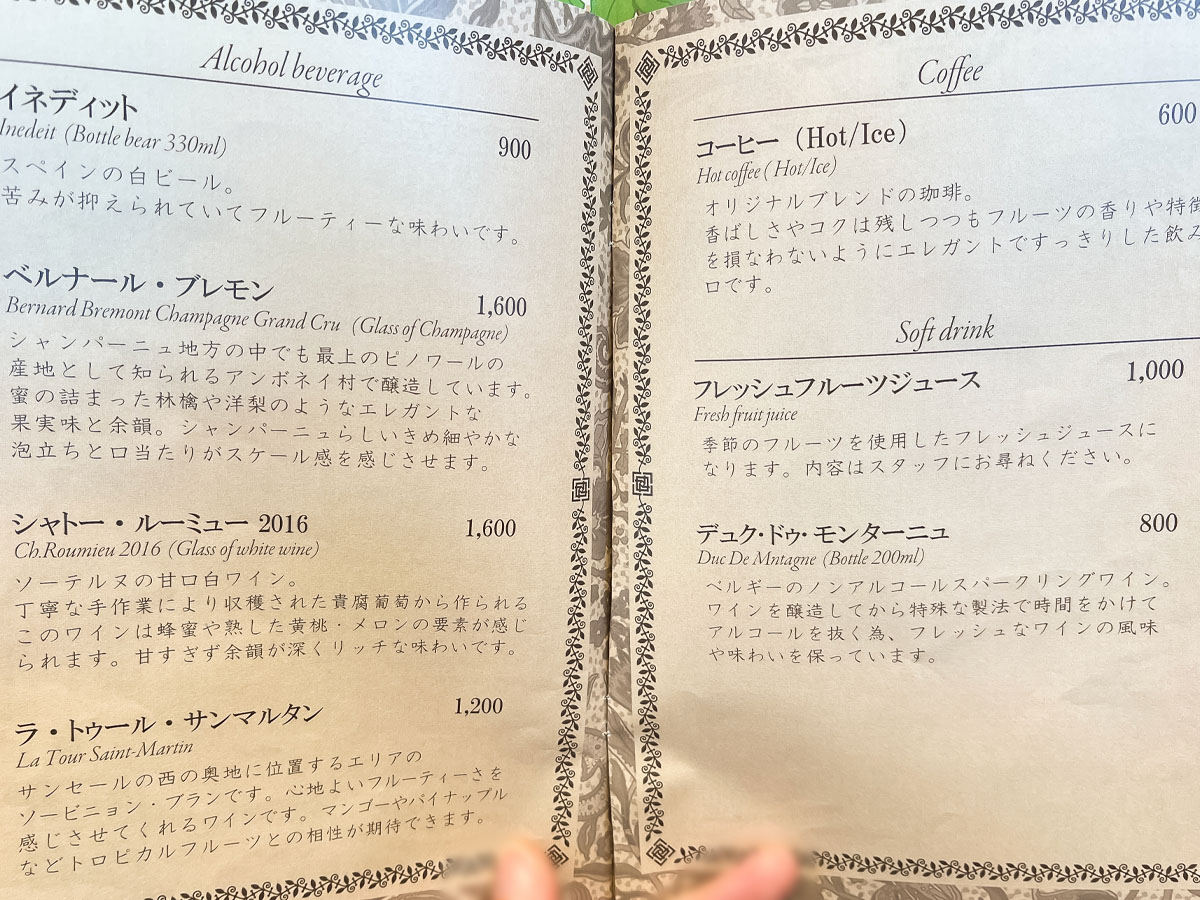 Alcohol beverage
イネディット
Inedeit (Bottle bear 330ml)
900
スペインの白ビール。
苦みが抑えられていてフルーティーな味わいです。
ベルナール・ブレモン
1,600
Bernard Bremont Champagne Grand Cru (Glass of Champagne)
シャンパーニュ地方の中でも最上のピノワールの
産地として知られるアンボネイ村で醸造しています。
蜜の詰まった林檎や洋梨のようなエレガントな
果実味と余韻。シャンパーニュらしいきめ細やかな
泡立ちと口当たりがスケール感を感じさせます。
シャトー・ルーミュー 2016
1,600
Ch.Roumieu 2016 (Glass of white wine)
ソーテルヌの甘口白ワイン。
丁寧な手作業により収穫された貴腐葡萄から作られる
このワインは蜂蜜や熟した黄桃・メロンの要素が感じ
られます。甘すぎず余韻が深くリッチな味わいです。
ラ・トゥール・サンマルタン
1,200
La Tour Saint-Martin
サンセールの西の奥地に位置するエリアの
ソービニョン・ブランです。心地よいフルーティーさを
感じさせてくれるワインです。マンゴーやパイナップル
などトロピカルフルーツとの相性が期待できます。
Coffee
コーヒー (Hot/Ice)
600
Hot coffee ( Hot/Ice)
オリジナルブレンドの珈琲。
香ばしさやコクは残しつつもフルーツの香りや特徴
を損なわないようにエレガントですっきりした飲み
口です。
Soft drink
フレッシュフルーツジュース
1,000
Fresh fruit juice
季節のフルーツを使用したフレッシュジュースに
なります。内容はスタッフにお尋ねください。
デュク・ドゥ・モンターニュ
800
Duc De Mntagne (Bottle 200ml)
ベルギーのノンアルコールスパークリングワイン。
ワインを醸造してから特殊な製法で時間をかけて
アルコールを抜く為、フレッシュなワインの風味
や味わいを保っています。